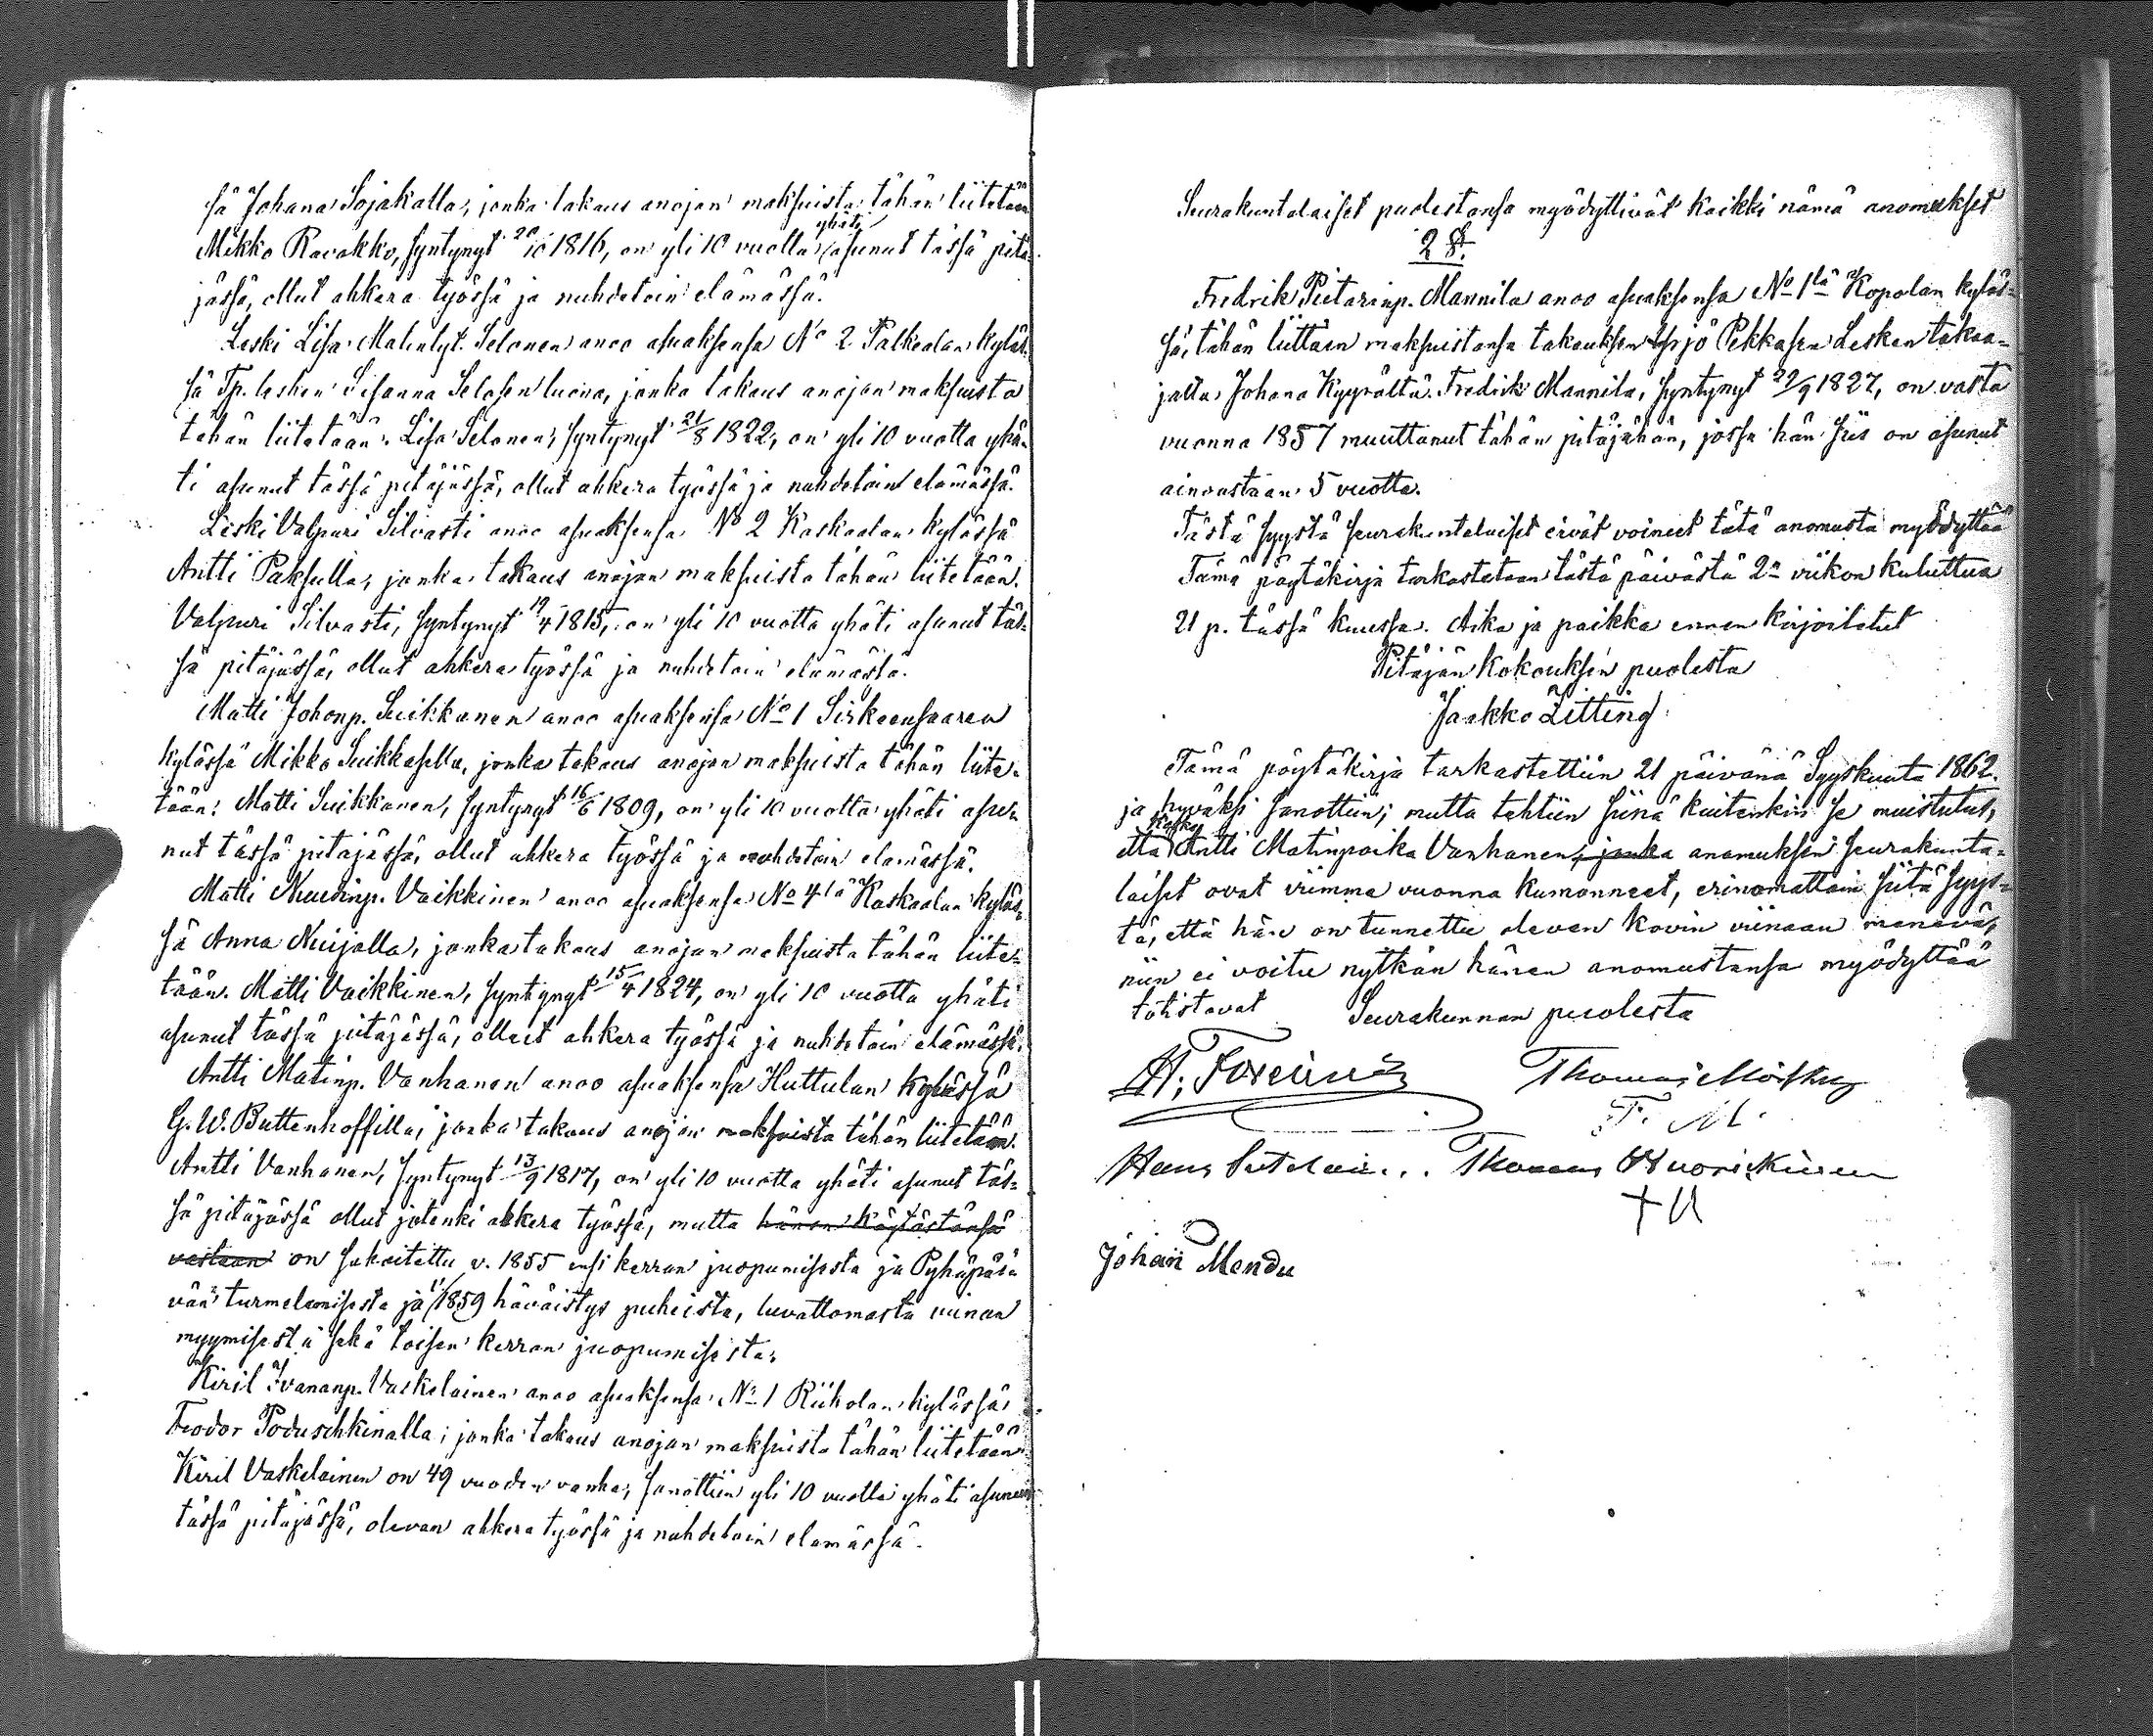 sä Johana Sojakalla, jonka takaus anojan maksuista tähän liitetään
Mikko Ravakko, syntynyt 20/10 1816, on yli 10 vuotta yhäti asunut tässä pitä-
jässä, ollut ahkera työssä ja nuhdetoin elämässä.
Leski Lisa Matintyt. Selonen anoo asuaksensa No 2 Palkealan kyläs-
sä Tp. lesken Susanna Selosen luona, jonka takaus anojan maksuista
tähän liitetään. Lisa Selonen, syntynyt 21/8 1822, on yli 10 vuotta yhä-
ti asunut tässä pitäjässä, ollut ahkera työssä ja nuhdetoin elämässä.
Leski Valpuri Silvasti anoo asuaksensa No 2 Kaskaalan kylässä
Antti Paksulla, jonka takaus anojan maksuista tähän liitetään.
Valpuri Silvasti, syntynyt 19/4 1815, on yli 10 vuotta yhäti asunut täs-
sä pitäjässä, ollut ahkera työssä ja nuhdetoin elämästä.
Matti Johonp. Suikkanen anoo asuaksensa No 1 Siskeensaaren
kylässä Mikko Suikkasella, jonka takaus anojan maksuista tähän liite-
tään. Matti Suikkanen, syntynyt 16/6 1809, on yli 10 vuotta yhäti asu-
nut tässä pitäjässä, ollut ahkera työssä ja nuhdetoin elämässä.
Matti Vaikkinen anoo asuaksensa No 4lä Kaskaalan kyläs-
sä Anna Nuijalla, jonka takaus anojan maksuista tähän liite-
tään. Matti Vaikkinen, syntynyt 15/4 1824, on yli 10 vuotta yhäti
asunut tässä pitäjässä, ollut ahkera työssä ja nuhdetoin elämässä.
Antti Matinp. Vanhanen anoo asuaksensa Huttulan kylässä
G. W. Buttenhoffilla, jonka takaus anojan maksuista tähän liitetään.
Antti Vanhanen, syntynyt 13/9 1817, on yli 10 vuotta yhäti asunut täs-
sä pitäjässä ollut jotenki ahkera työssä, mutta hänen käytöstänsä
vastaan on sakoitettu v. 1855 ensi kerran juopumisesta ja Pyhäpäi-
vän turmelemisesta ja 1859 häväistys puheista, luvattomasta viinan
myymisestä sekä toisen kerran juopumisesta.
Kiril Ivananp. Vaskelainen anoo asuaksensa No 1 Riikolan kylässä
Feodor Poduschkinalla, jonka takaus anojan maksuista tähän liitetään
Kiril Vaskelainen on 49 vuoden vanha, sanottiin yli 10 vuotta yhäti asuneen
tässä pitäjässä, olevan ahkera työssä ja nuhdetoin elämässä.
Seurakuntalaiset puolestansa myödyttivät kaikki nämä anomukset
2 §.
Fredrik Pietarinp. Mannila anoo asuaksensa No 1lä Kopolan kyläs-
sä, tähän liittäen maksuistansa takauksen Yrjö Pekkasen Lesken takaa-
jalta Johana Kyyrältä. Fredrik Mannila, syntynyt 22/9 1827, on vasta
vuonna 1857 muuttanut tähän pitäjähän, jossa hän siis on asunut
ainoastaan 5 vuotta.
Tästä syystä seurakuntalaiset eivät voineet tätä anomusta myödyttää
Tämä pöytäkirja tarkastetaan tästä päivästä 2n viikon kuluttua
21 p. tässä kuussa. Aika ja paikka ennen kirjoitetut
Pitäjän kokouksen puolesta
Jaakko Zitting
Tämä pöytäkirja tarkastettiin 21 päivänä Syyskuuta 1862.
ja hyväksi sanottiin; mutta tehtiin siinä kuitenkin se muistutus,
että koska Antti Matinpoika Vanhanen, jonka anomuksen seurakunta-
laiset ovat viimme vuonna kumonneet, erinomattain siitä syys-
tä, että hän on tunnettu olevan kovin viinaan menevä,
niin ei voitu nytkän hänen anomustansa myödyttää
totistavat Seurakunnan puolesta
Thomas
T. M.
Hans Thomas Wuorickinen
Johan Mendu